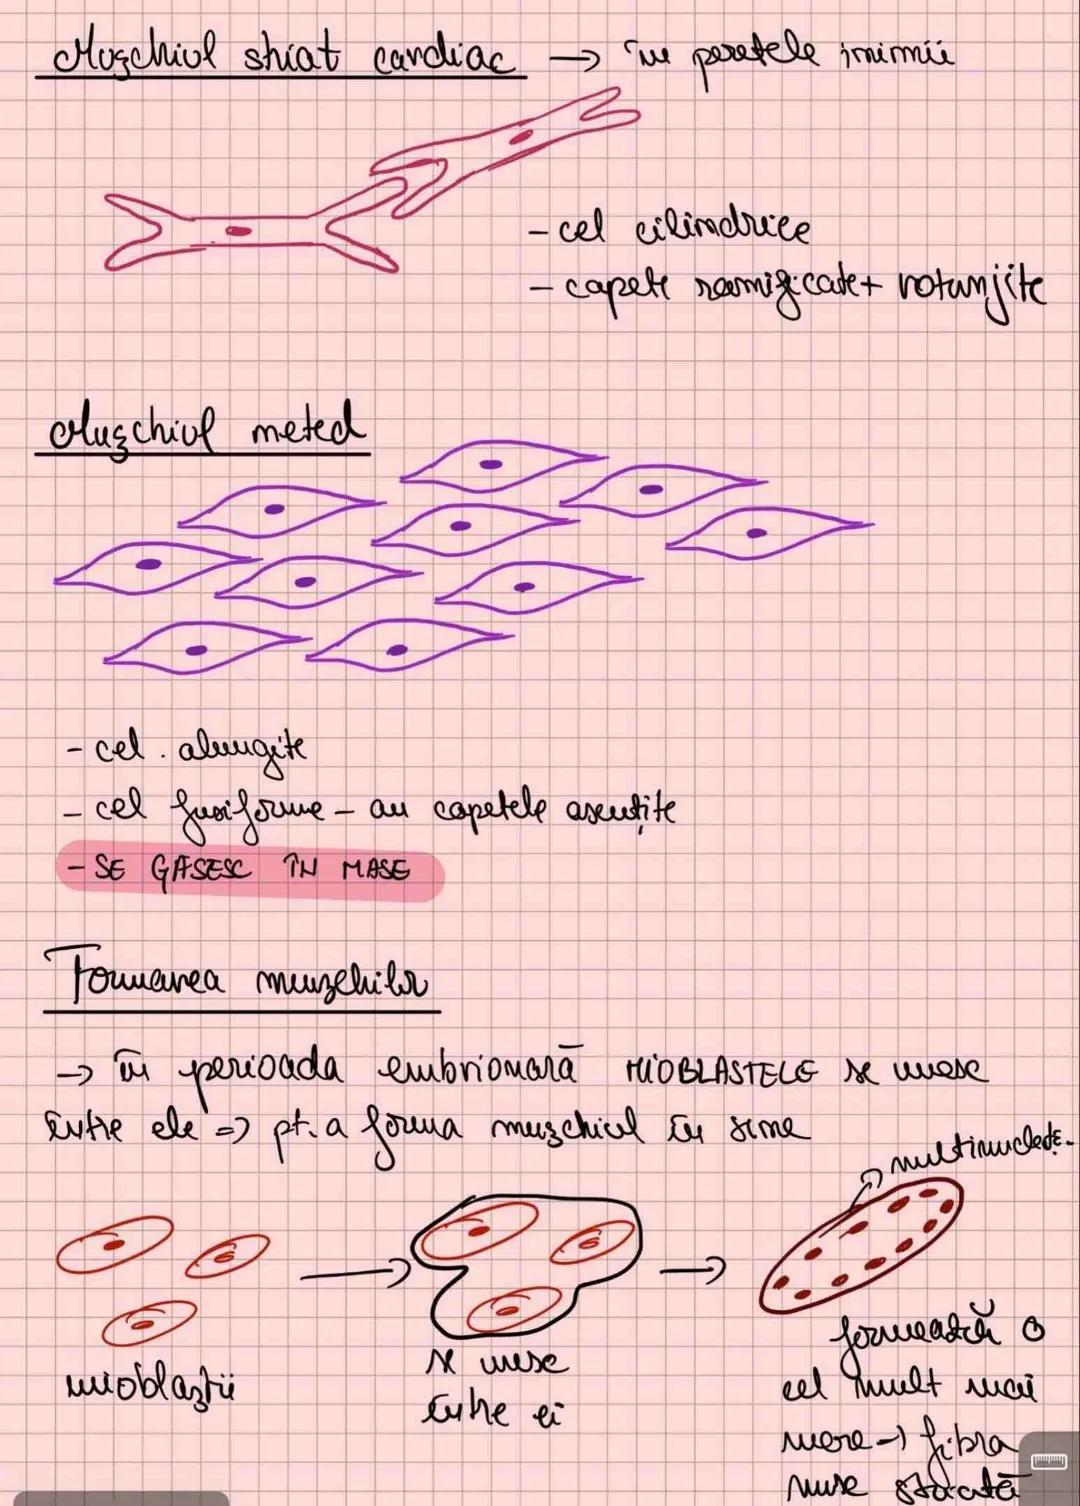 Mușchiul striat cardiac → în peretele inimii
- cel cilindrice
- capete ramificate + rotunjite
Mușchiul neted
- cel. alungite
- cel fusiforme - au capetele ascuțite
- SE GĂSESC ÎN MASE
Formarea mușchilor
→ în perioada embrionară MIOBLASTELE se unesc
între ele => pt. a forma mușchiul în sine
multinucleate.
mioblaștii
se unesc
între ei
formează o
cel mult mai
mare → fibra
musc striată